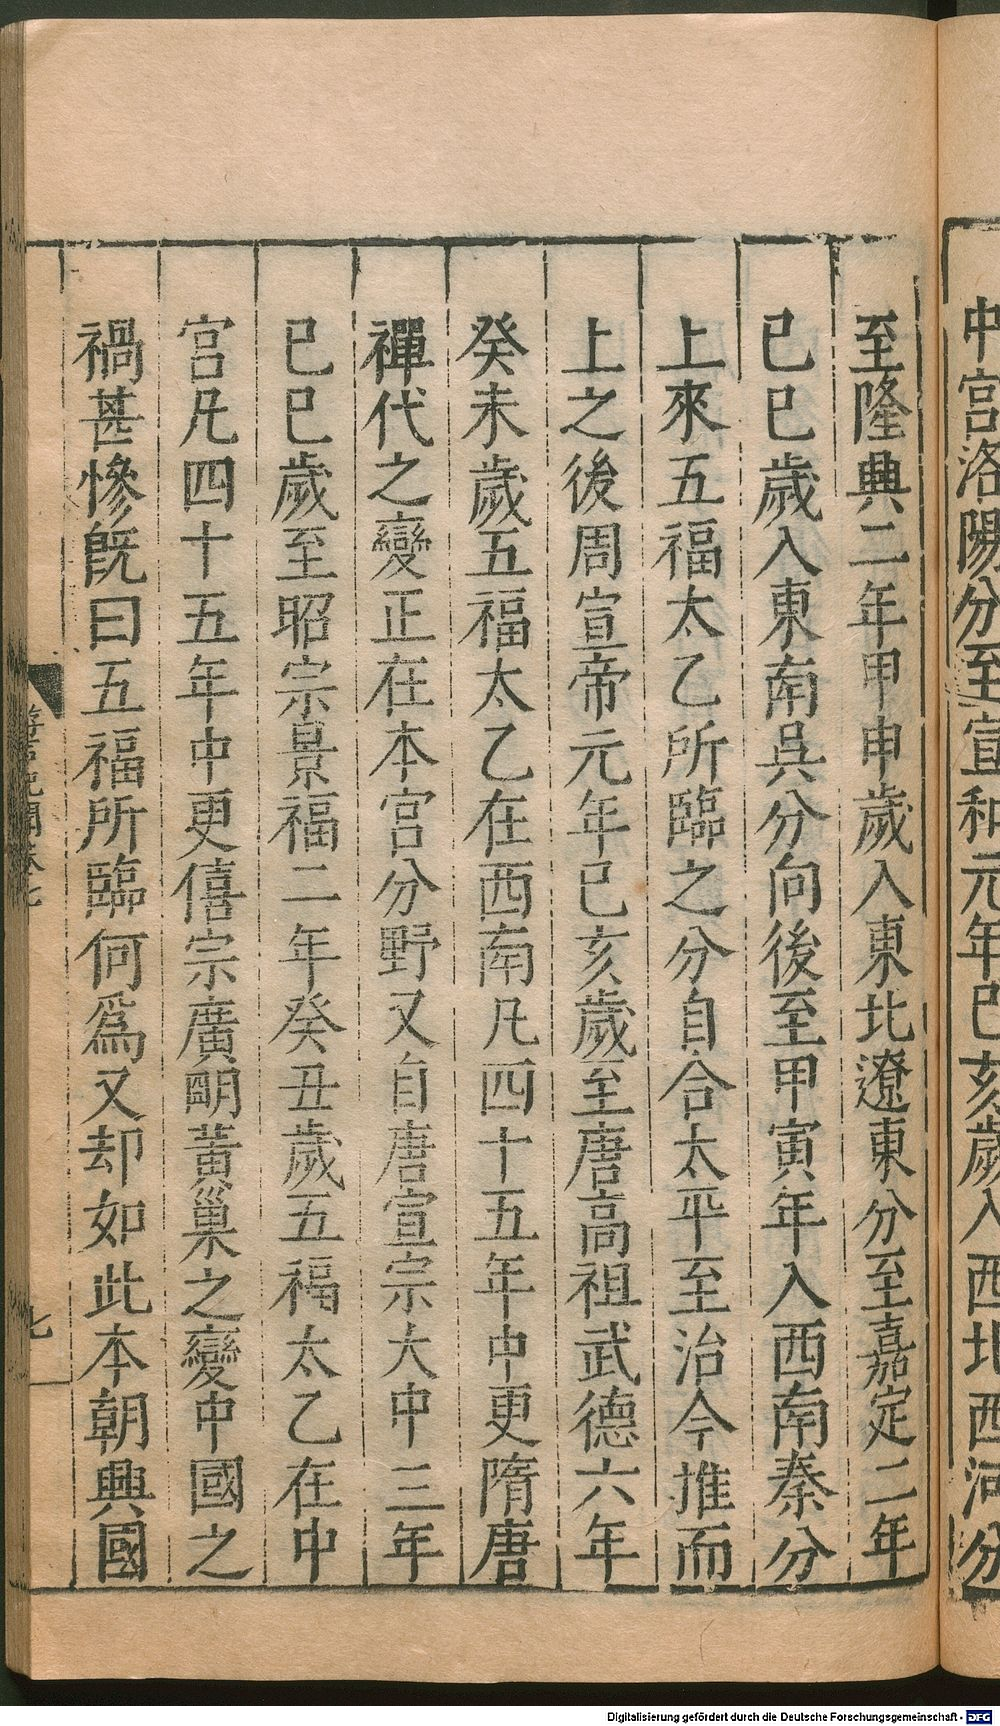 中宮洛陽分至宣和元年己亥歲入西北西河分
至隆興二年甲申歲入東北遼東分至嘉定二年
已巳歲入東南吳分向後至甲寅年入西南秦分
上來五福太乙所臨之分自合太平至治今推而
上之後周宣帝元年已亥歲至唐高祖武德六年
癸未歲五福太乙在西南凡四十五年中更隋唐
禪代之變正在本宮分野又自唐宣宗大中三年
已巳歲至昭宗景福二年癸丑歲五福太乙在中
宮凡四十五年中更僖宗廣明黃巢之變中國之
禍甚慘旣曰五福所臨何爲又却如此本朝興國
七
Digitalisierung gefördert durch die Deutsche Forschungsgemeinschaft - DFG